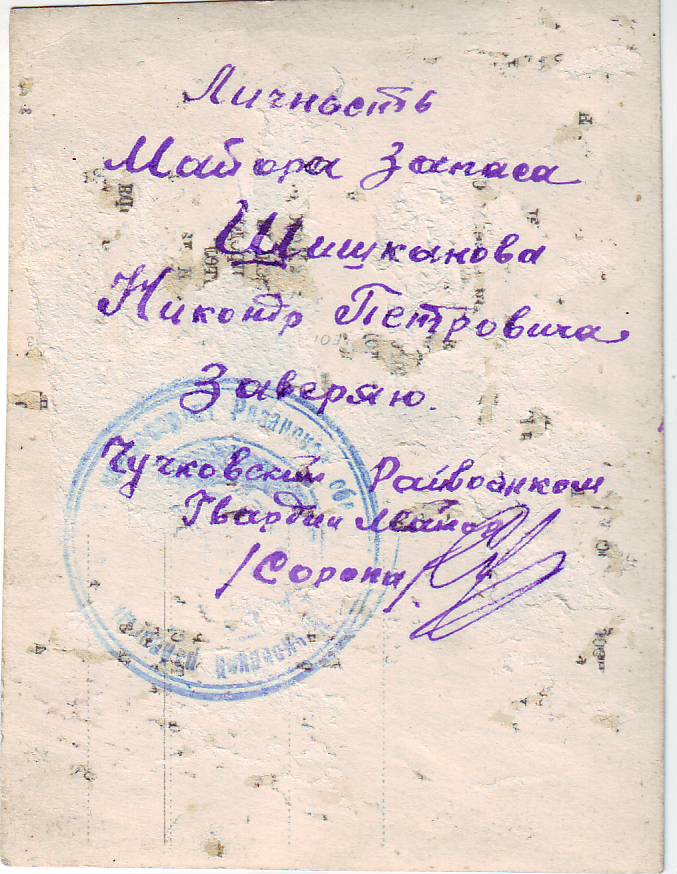 Личность
Майора Запаса
Шишканова
Никондр Петровича
Заверяю.
Чучковский Райвоенком
Гвардии Майор
/Сорока/
Рязанской обл